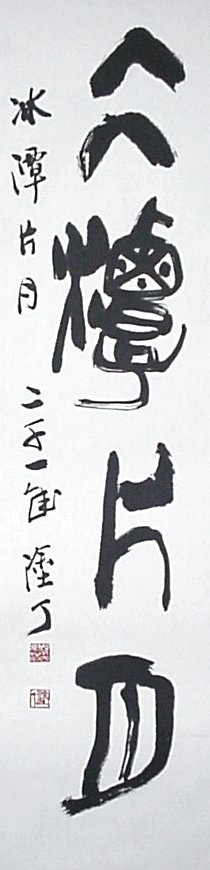 仌潭片月
冰潭片月 二千一年 丁